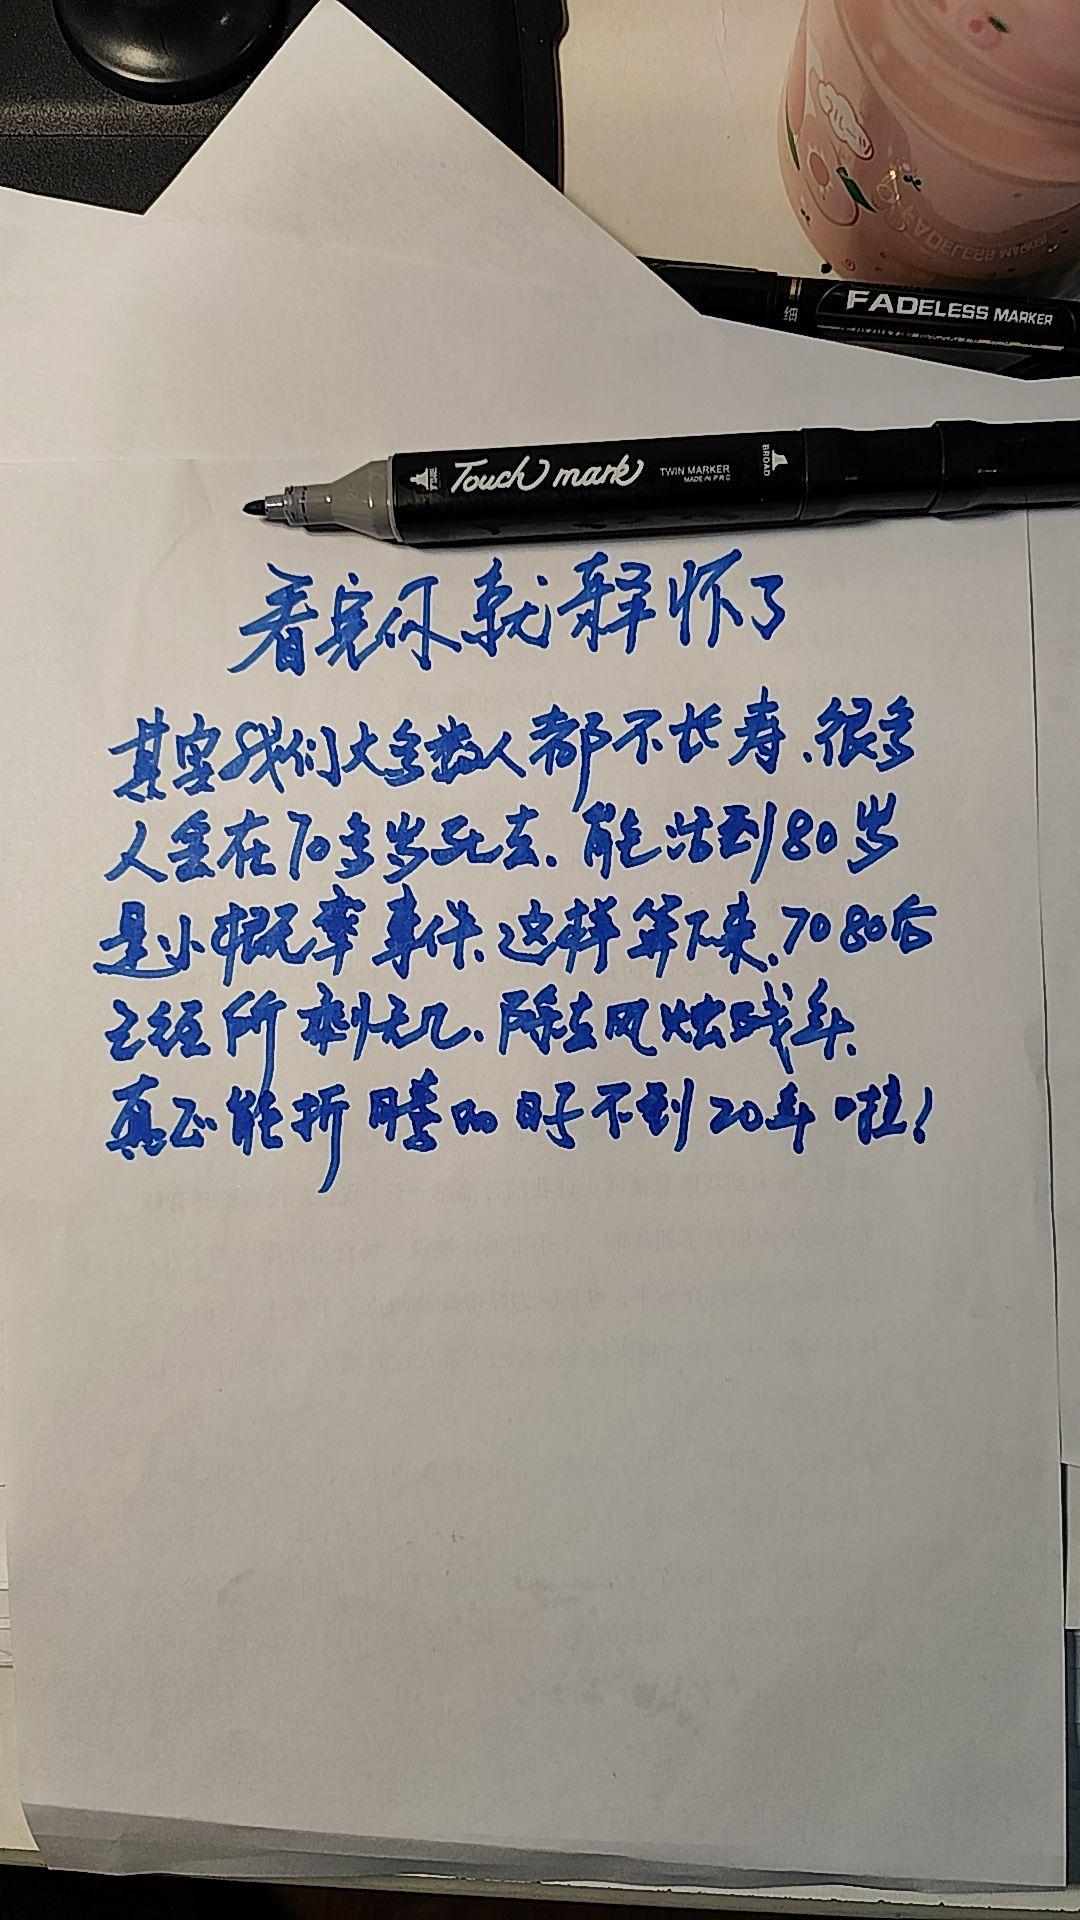 细
FADELESS MARKER
Touch mark
TWIN MARKER
MADE IN P.R.C
BROAD
看完你就释怀了
其实我们大多数人都不长寿、很多
人会在70多岁死去、能活到80岁
是小概率事件、这样算下来、7080后
已经所剩无几、除去风烛残年、
真正能折腾的日子不到20年啦！